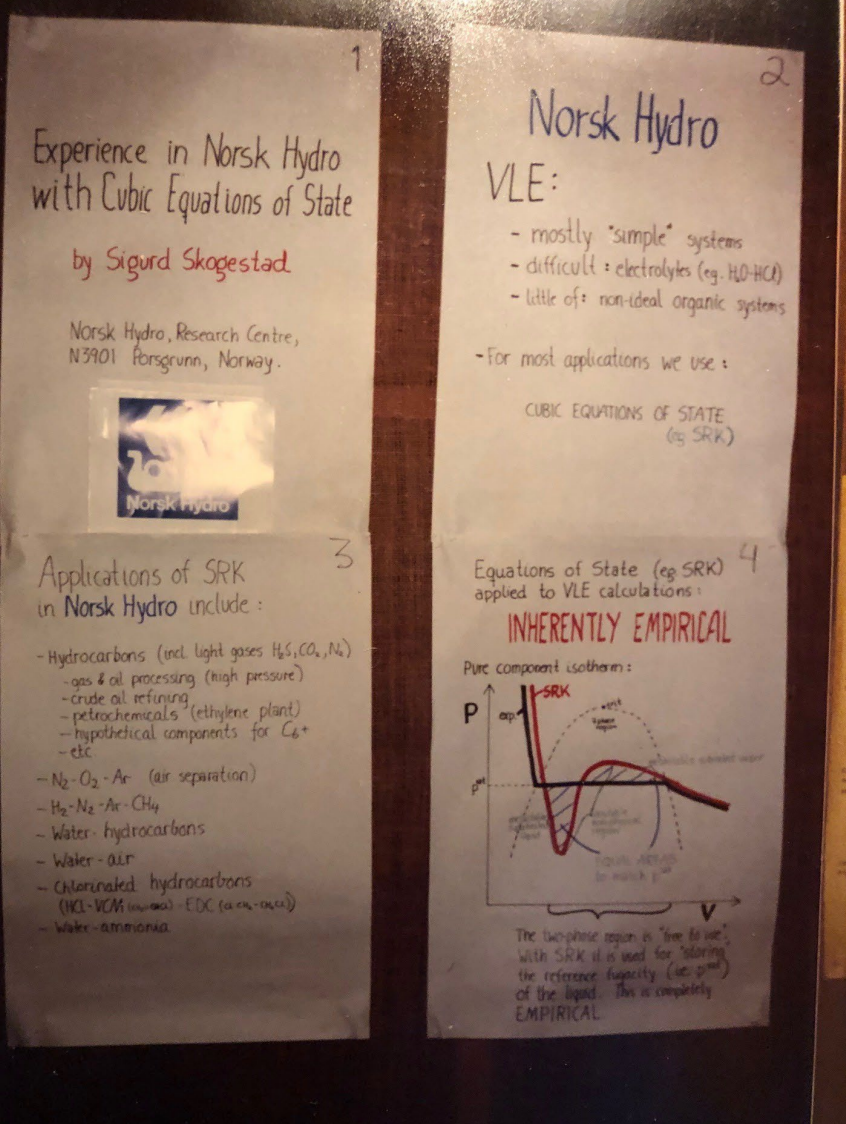 1
Experience in Norsk Hydro
with Cubic Equations of State
by Sigurd Skogestad
Norsk Hydro, Research Centre,
N3901 Porsgrunn, Norway.
Norsk Hydro
2
Norsk Hydro
VLE:
- mostly "simple" systems
- difficult : electrolytes (eg. H₂O-HCl)
- little of: non-ideal organic systems
- For most applications we use :
CUBIC EQUATIONS OF STATE
(eg SRK)
3
Applications of SRK
in Norsk Hydro include :
- Hydrocarbons (incl. light gases H₂S, CO₂, N₂)
- gas & oil processing (high pressure)
- crude oil refining
- petrochemicals (ethylene plant)
- hypothetical components for C₆+
- etc
- N₂-O₂-Ar (air separation)
- H₂-N₂-Ar-CH₄
- Water-hydrocarbons
- Water-air
- Chlorinated hydrocarbons
(HCl-VCM - EDC
- Water-ammonia
4
Equations of State (eg SRK)
applied to VLE calculations :
INHERENTLY EMPIRICAL
Pure component isotherm :
SRK
P
exp.
crit
2 phase
region
P sat
EQUAL AREAS
to match p sat
V
The two-phase region is "free to use".
With SRK it is used for "storing"
the reference fugacity (i.e. p sat)
of the liquid. This is completely
EMPIRICAL